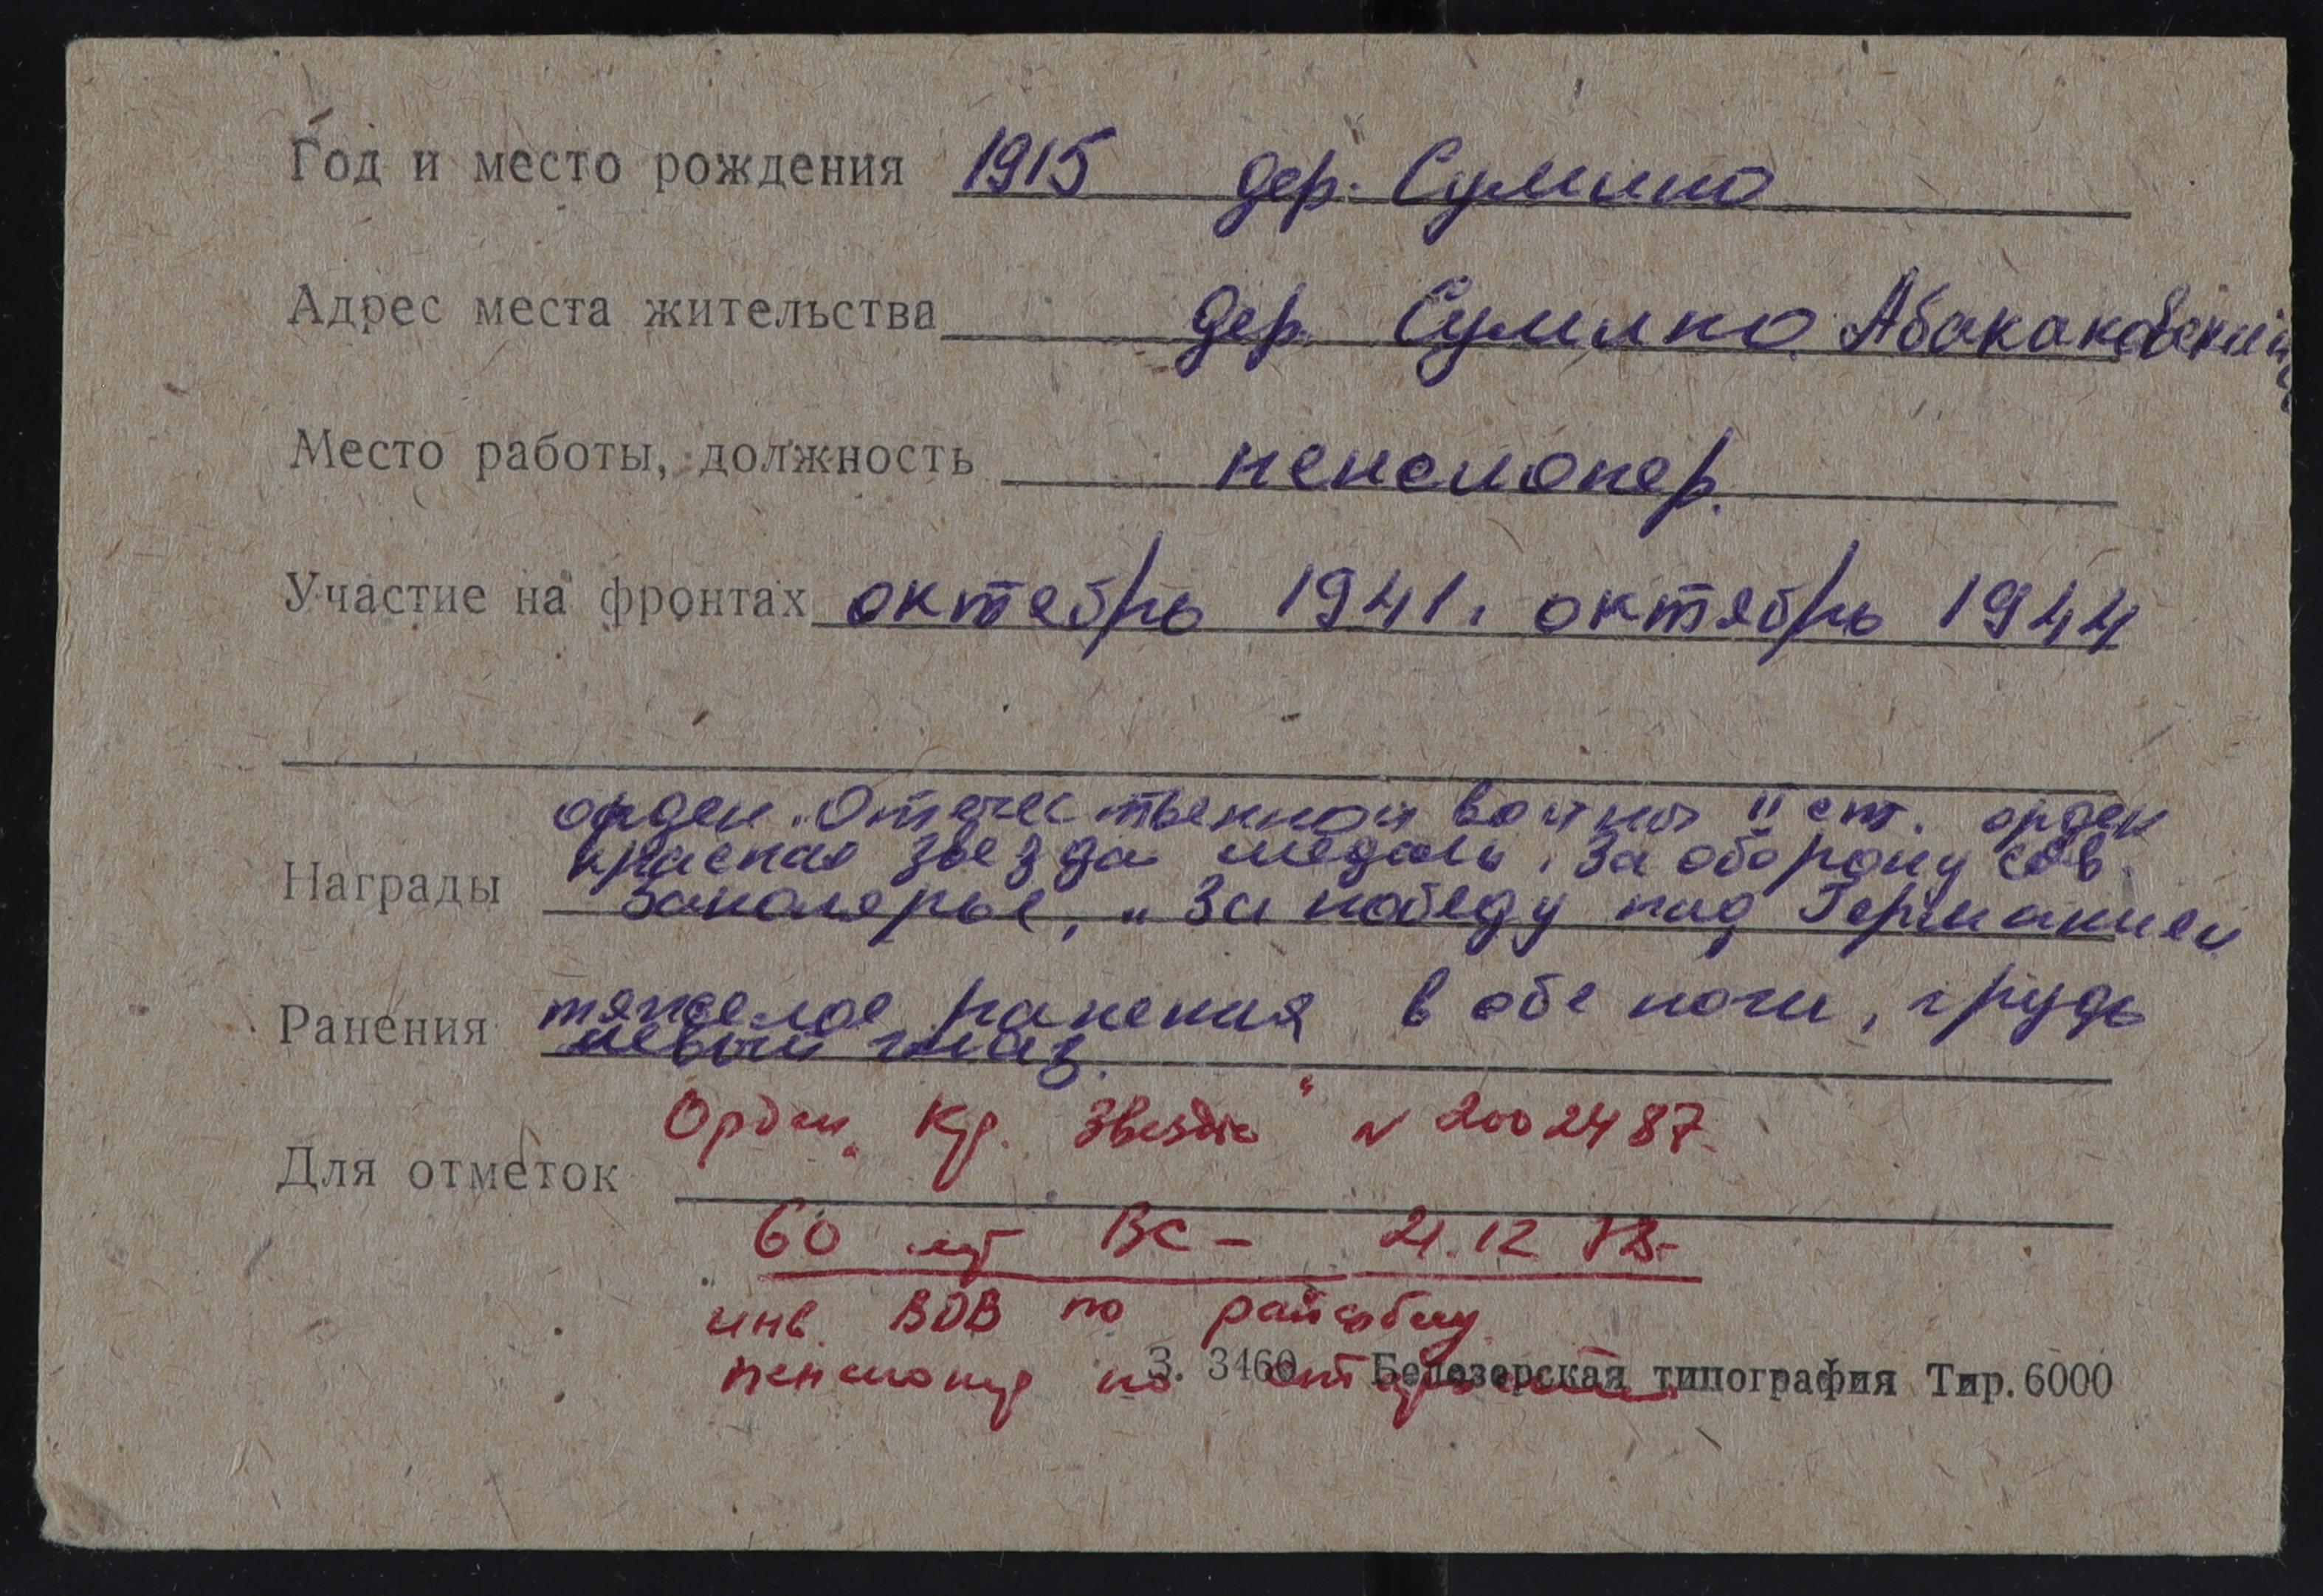 Год и место рождения 1915 дер. Сумино
Адрес места жительства дер. Сумино Абакановский
Место работы, должность пенсионер.
Участие на фронтах октебрь 1941. октябрь 1944
орден „Отечественной войны II ст. орден
красная звезда медаль, За оборону Сов.
Награды Заполярье, „За победу над Германией
Ранения тяжелое ранения в обе ноги, грудь
левый глаз.
Орден „Кр. Звезда“ N 2002487.
Для отметок
60 лет ВС - 21.12
инв. ВОВ по райсобесу
пенсионер по
З. 3460 Белозерская типография Тир. 6000